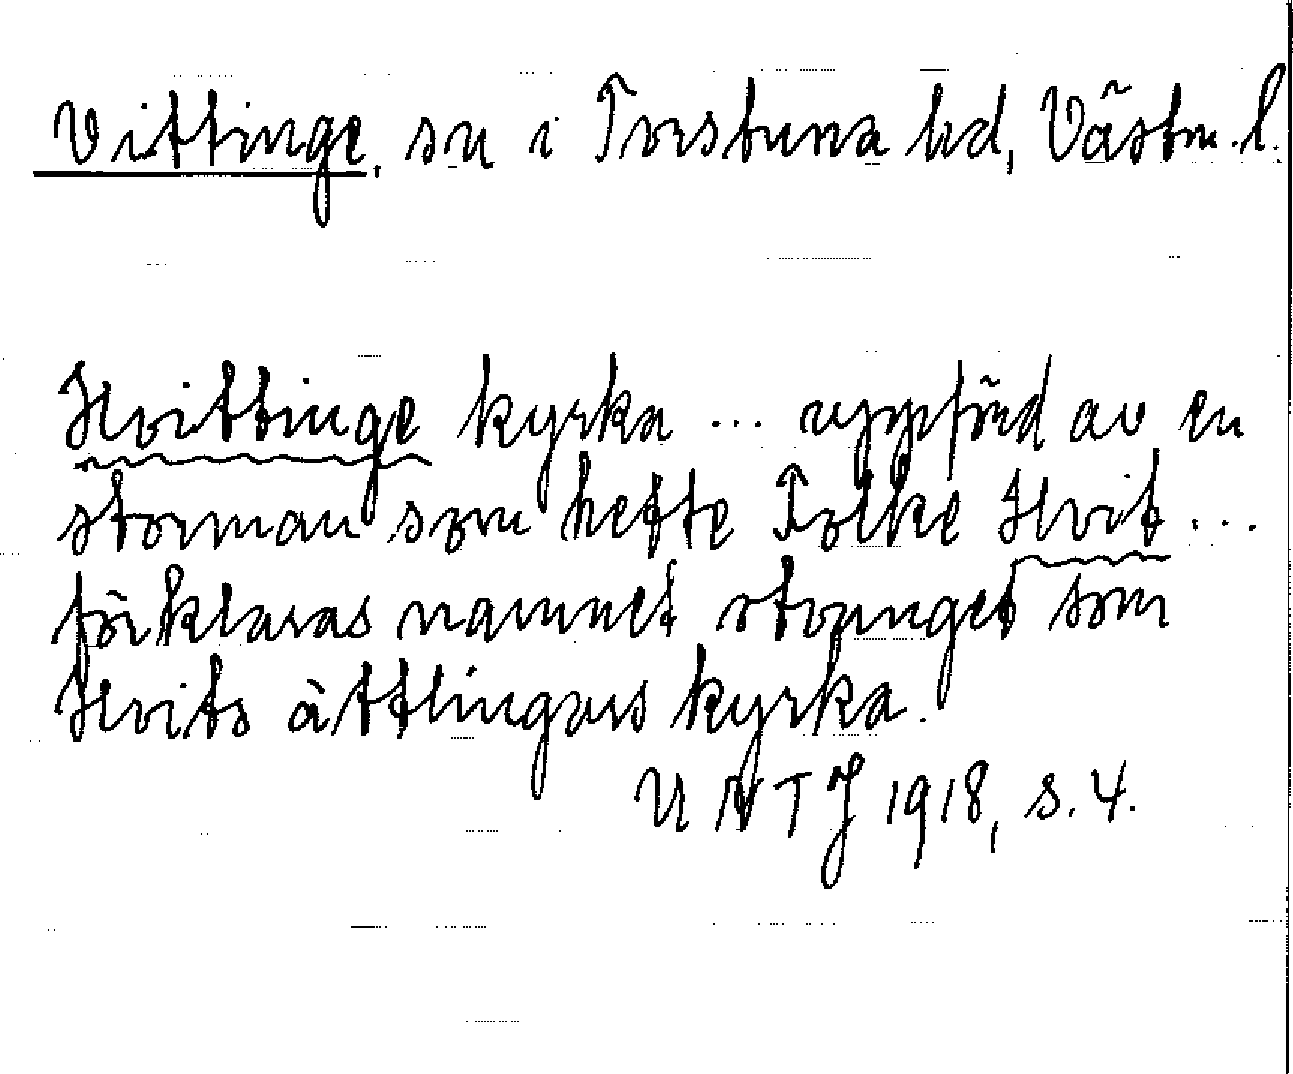 Vittinge, sn i Torstuna hd, Västm. l.
Hvittinge kyrka ... uppförd av en
storman som hette Folke Hvit ...
förklaras namnet stonnget som
Hvits ättlingars kyrka.
UNTJ 1918, s. 4.